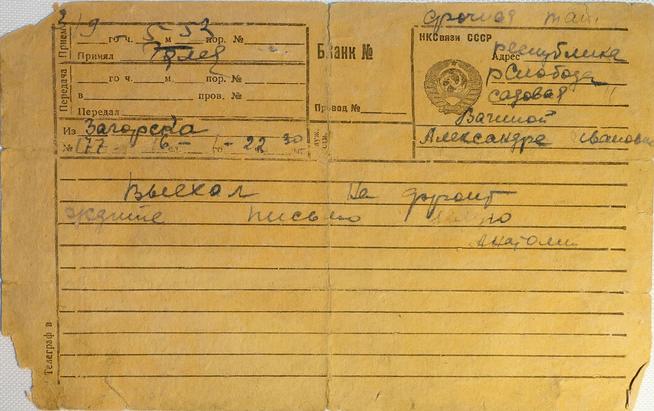 3/9 го ч. 5 м 52 пор. №
Принял
го ч. м пор. №
в пров. №
Передал
Прием
Передача
Из Загорска
№ 77 6 сл. го 22 30
Бланк №
Провод №
срочная
НКСвязи СССР
Адрес республика
Слобода
садовая 11
Вагиной
Александре Ивановне
Выехал на фронт
ждите письмо
Анатолий
Телеграф в